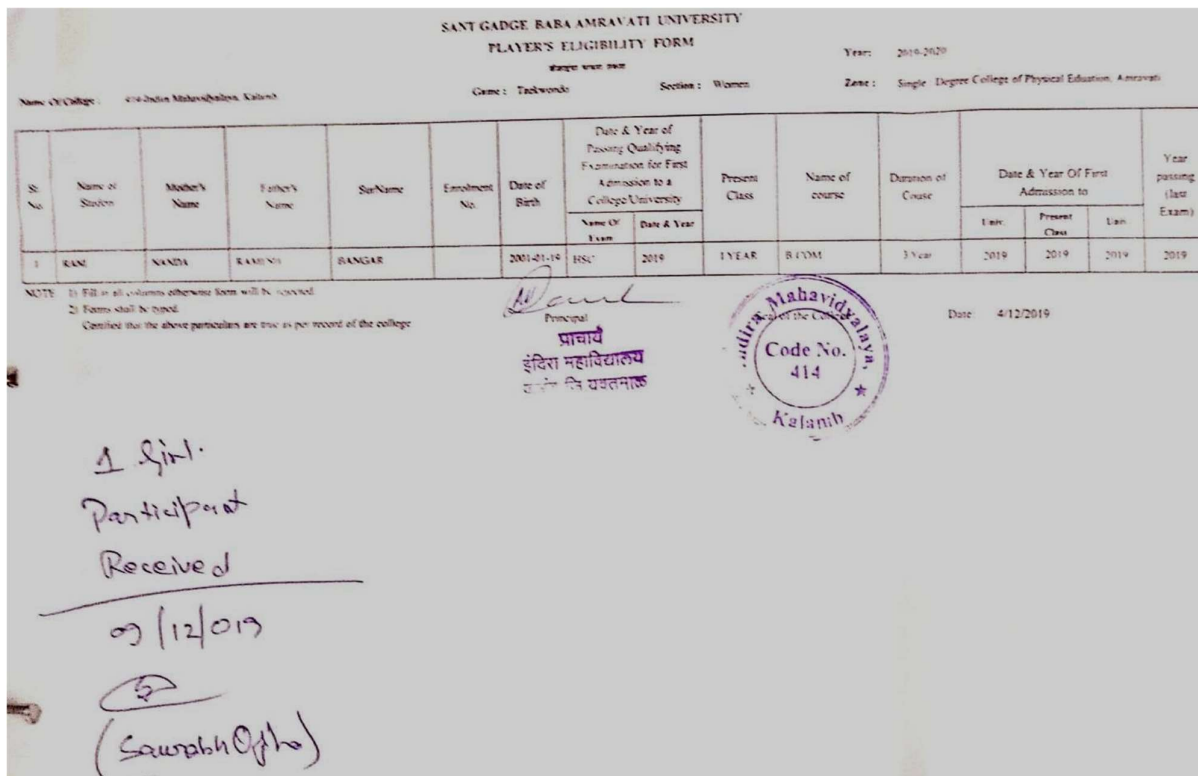 SANT GADGE BABA AMRAVATI UNIVERSITY
PLAYER'S ELIGIBILITY FORM
Year: 2019-2020
Name Of College : 414-Indira Mahavidyalaya, Kalamb
Game : Taekwondo
Section : Women
Zone : Single - Degree College of Physical Eduation, Amravati
Sr. No.
Name of Student
Mother's Name
Father's Name
SurName
Enrolment No.
Date of Birth
Date & Year of Passing Qualifying Examination for First Admission to a College/University
Name Of Exam
Date & Year
Present Class
Name of course
Duration of Couse
Date & Year Of First Admission to
Univ.
Present Class
Uni.
Year passing (last Exam)
1 RANI NANDA BANGAR 2001-01-19 HSC 2019 I YEAR B.COM 3 Year 2019 2019 2019 2019
NOTE 1) Fill in all columns otherwise form will be rejected.
2) Forms shall be typed.
Certified that the above particulars are true as per record of the college
Principal
of the College
Date 4/12/2019
प्राचार्य
इंदिरा महाविद्यालय
यवतमाळ
Indira Mahavidyalaya,
Code No.
414
Kalamb
1 Girl.
Participant
Received
09/12/019
(Saurabh Ojha)